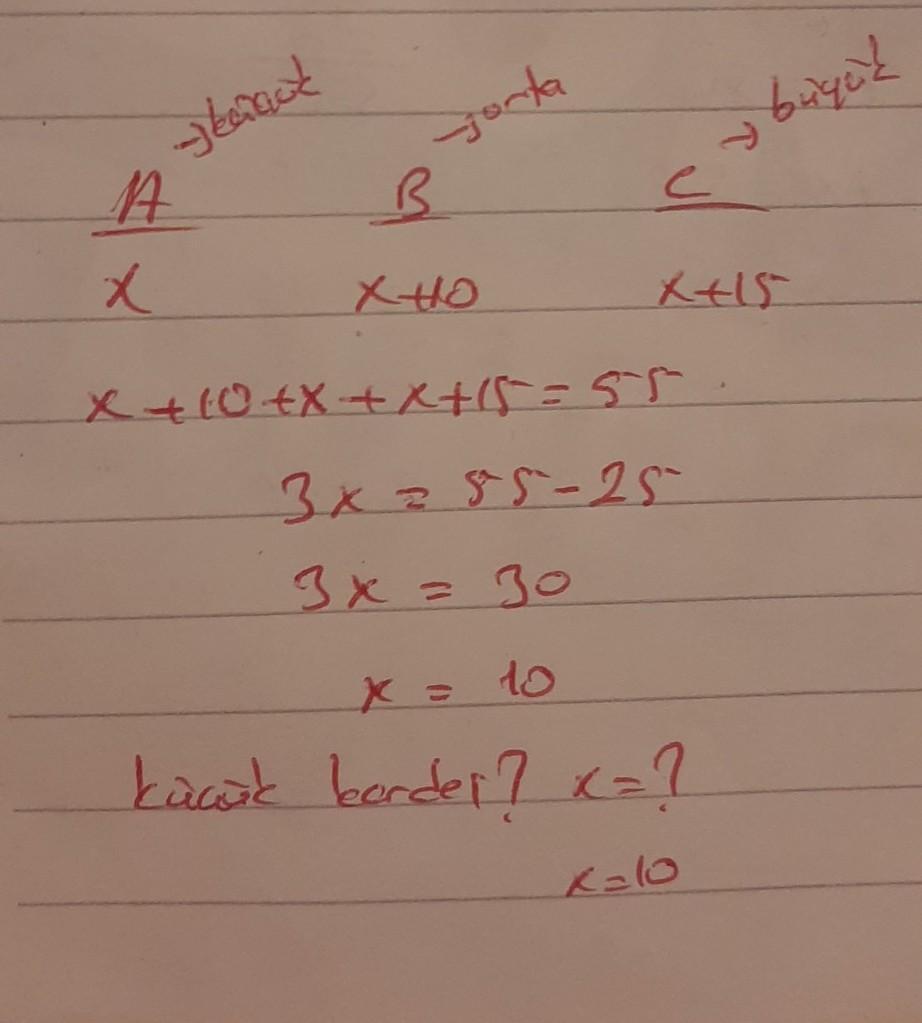 →küçük →orta →büyük
A B C
x x+10 x+15
x+10+x+x+15=55
3x=55-25
3x=30
x=10
küçük kardeş? x=?
x=10